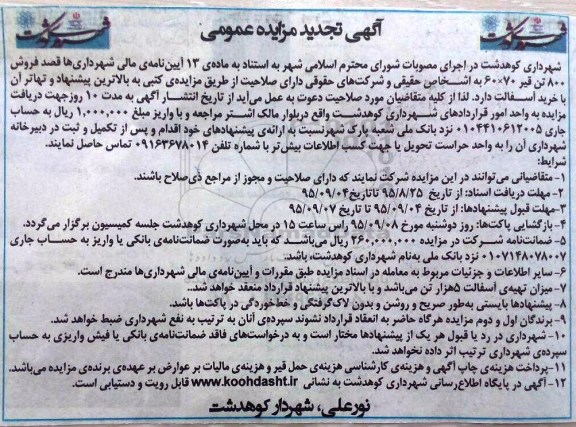 آگهی تجدید مزایده عمومی
شهرداری کوهدشت در اجرای مصوبات شورای محترم اسلامی شهر به استناد به ماده‌ی ۱۳ آیین‌نامه‌ی مالی شهرداری‌ها قصد فروش
۸۰۰ تن قیر ۷۰×۶۰ به اشخاص حقیقی و شرکت‌های حقوقی دارای صلاحیت از طریق مزایده‌ی کتبی به بالاترین پیشنهاد و تهاتر آن
با خرید آسفالت دارد. لذا از کلیه متقاضیان مورد صلاحیت دعوت به عمل می‌آید از تاریخ انتشار آگهی به مدت ۱۰ روز جهت دریافت
مزایده به واحد امور قراردادهای شهرداری کوهدشت واقع دربلوار مالک اشتر مراجعه و با واریز مبلغ ۱,۰۰۰,۰۰۰ ریال به حساب
جاری ۰۱۰۴۴۱۰۶۱۲۰۰۵ نزد بانک ملی شعبه پارک شهرنسبت به ارائه‌ی پیشنهادهای خود اقدام و پس از تکمیل و ثبت در دبیرخانه
شهرداری آن را به واحد حراست تحویل یا جهت کسب اطلاعات بیش‌تر با شماره تلفن ۰۹۱۶۳۶۷۸۰۱۴ تماس حاصل نمایند.
شرایط:
۱- متقاضیانی می‌توانند در این مزایده شرکت نمایند که دارای صلاحیت و مجوز از مراجع ذی‌صلاح باشند.
۲-مهلت دریافت اسناد: از تاریخ ۹۵/۸/۲۵ تاتاریخ ۹۵/۰۹/۰۴
۳-مهلت قبول پیشنهادها: از تاریخ ۹۵/۰۹/۰۴ تا تاریخ ۹۵/۰۹/۰۷
۴- بازگشایی پاکت‌ها: روز دوشنبه مورخ ۹۵/۰۹/۰۸ راس ساعت ۱۵ در محل شهرداری کوهدشت جلسه کمیسیون برگزار می‌گردد.
۵- ضمانت‌نامه شرکت در مزایده ۲۶۰,۰۰۰,۰۰۰ ریال می‌باشد که باید به‌صورت ضمانت‌نامه‌ی بانکی یا واریز به حساب جاری
۰۱۰۷۱۴۸۰۷۸۰۰۷ نزد بانک ملی به‌نام شهرداری کوهدشت، باشد.
۶- سایر اطلاعات و جزئیات مربوط به معامله در اسناد مزایده طبق مقررات و آیین‌نامه‌ی مالی شهرداری‌ها مندرج است.
۷- میزان تهیه‌ی آسفالت ۵هزار تن می‌باشد و با بالاترین پیشنهاد قرارداد منعقد خواهد شد..
۸- پیشنهادها بایستی به‌طور صریح و روشن و بدون لاک‌گرفتگی و خط‌خوردگی در پاکت‌ها باشد.
۹- برندگان اول و دوم مزایده هرگاه حاضر به انعقاد قرارداد نشوند سپرده‌ی آنان به ترتیب به نفع شهرداری ضبط خواهد شد.
۱۰- شهرداری در رد یا قبول هر یک از پیشنهادها مختار است و به درخواست‌های فاقد ضمانت‌نامه‌ی بانکی یا فیش واریزی به حساب
سپرده‌ی شهرداری ترتیب اثر داده نخواهد شد.
۱۱-پرداخت هزینه‌ی چاپ آگهی و هزینه‌ی کارشناسی هزینه‌ی حمل قیر و هزینه‌ی مالیات بر عوارض بر عهده‌ی برنده‌ی مزایده می‌باشد.
۱۲-آگهی در پایگاه اطلاع‌رسانی شهرداری کوهدشت به نشانی www.koohdasht.ir قابل رویت و دستیابی است.
نورعلی، شهردار کوهدشت